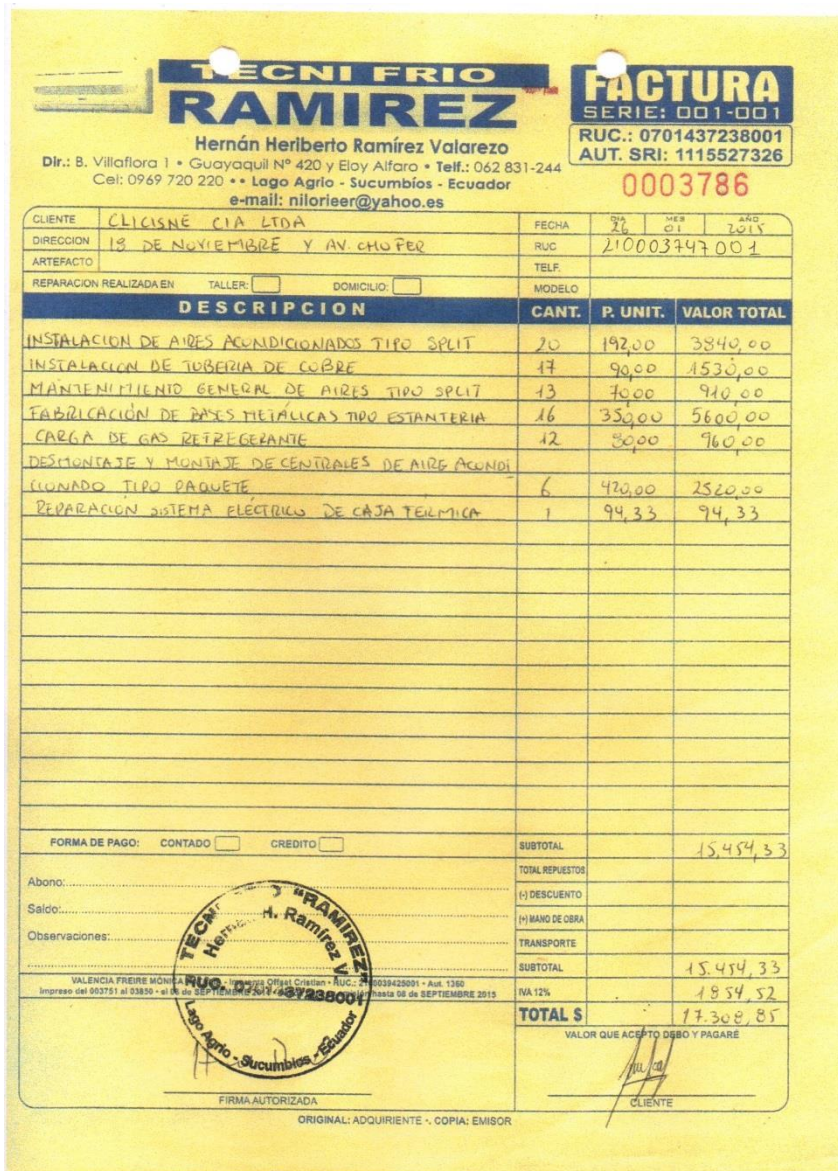 TECNI FRIO
RAMIREZ
Hernán Heriberto Ramírez Valarezo
Dir.: B. Villaflora 1 • Guayaquil Nº 420 y Eloy Alfaro • Telf.: 062 831-244
Cel: 0969 720 220 •• Lago Agrio - Sucumbíos - Ecuador
e-mail: nilorieer@yahoo.es
FACTURA
SERIE: 001-001
RUC.: 0701437238001
AUT. SRI: 1115527326
0003786
CLIENTE CLICISNE CIA LTDA
DIRECCION 18 DE NOVIEMBRE Y AV. CHOFER
ARTEFACTO
REPARACION REALIZADA EN TALLER: DOMICILIO:
FECHA DIA 26 MES 01 AÑO 2015
RUC 210003747001
TELF.
MODELO
DESCRIPCION CANT. P. UNIT. VALOR TOTAL
INSTALACION DE AIRES ACONDICIONADOS TIPO SPLIT 20 192,00 3840,00
INSTALACION DE TUBERIA DE COBRE 17 90,00 1530,00
MANTENIMIENTO GENERAL DE AIRES TIPO SPLIT 13 70,00 910,00
FABRICACIÓN DE BASES METÁLICAS TIPO ESTANTERIA 16 350,00 5600,00
CARGA DE GAS REFREGERANTE 12 80,00 960,00
DESMONTAJE Y MONTAJE DE CENTRALES DE AIRE ACONDI
CIONADO TIPO PAQUETE 6 420,00 2520,00
REPARACION SISTEMA ELÉCTRICO DE CAJA TERMICA 1 94,33 94,33
FORMA DE PAGO: CONTADO CREDITO
Abono:
Saldo:
Observaciones:
SUBTOTAL 15,454,33
TOTAL REPUESTOS
(-) DESCUENTO
(+) MANO DE OBRA
TRANSPORTE
SUBTOTAL 15.454,33
IVA 12% 1854,52
TOTAL $ 17.308,85
VALENCIA FREIRE MÓNICA - Imprenta Offset Cristian • RUC.: 2100039425001 • Aut. 1360
Impreso del 003751 al 03850 - el 06 de SEPTIEMBRE hasta 06 de SEPTIEMBRE 2015
TECNI "RAMIREZ"
H. Ramírez V.
RUC. 0701437238001
Lago Agrio - Sucumbíos - Ecuador
FIRMA AUTORIZADA
VALOR QUE ACEPTO DEBO Y PAGARÉ
CLIENTE
ORIGINAL: ADQUIRIENTE -. COPIA: EMISOR